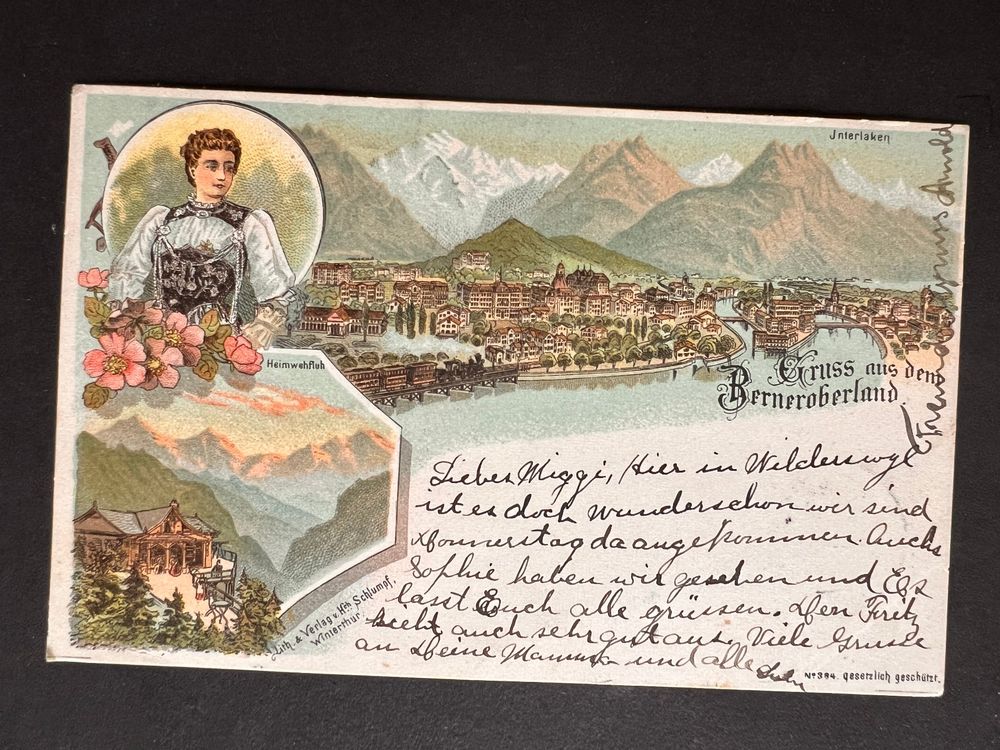 Jnterlaken
Heimwehfluh
Gruss aus dem
Berneroberland.
Lith. & Verlag v. Hch. Schlumpf,
Winterthur.
Lieber Miggi, Hier in Wilderswyl
ist es doch wunderschon wir sind
Donnerstag da angekommen. Auch
Sophie haben wir gesehen und
lasst Euch alle grüssen. Den Fritz
sieht auch sehr gut aus. Viele Grüsse
an Deine Mamma und alle
Arnold
No 384. gesetzlich geschützt.